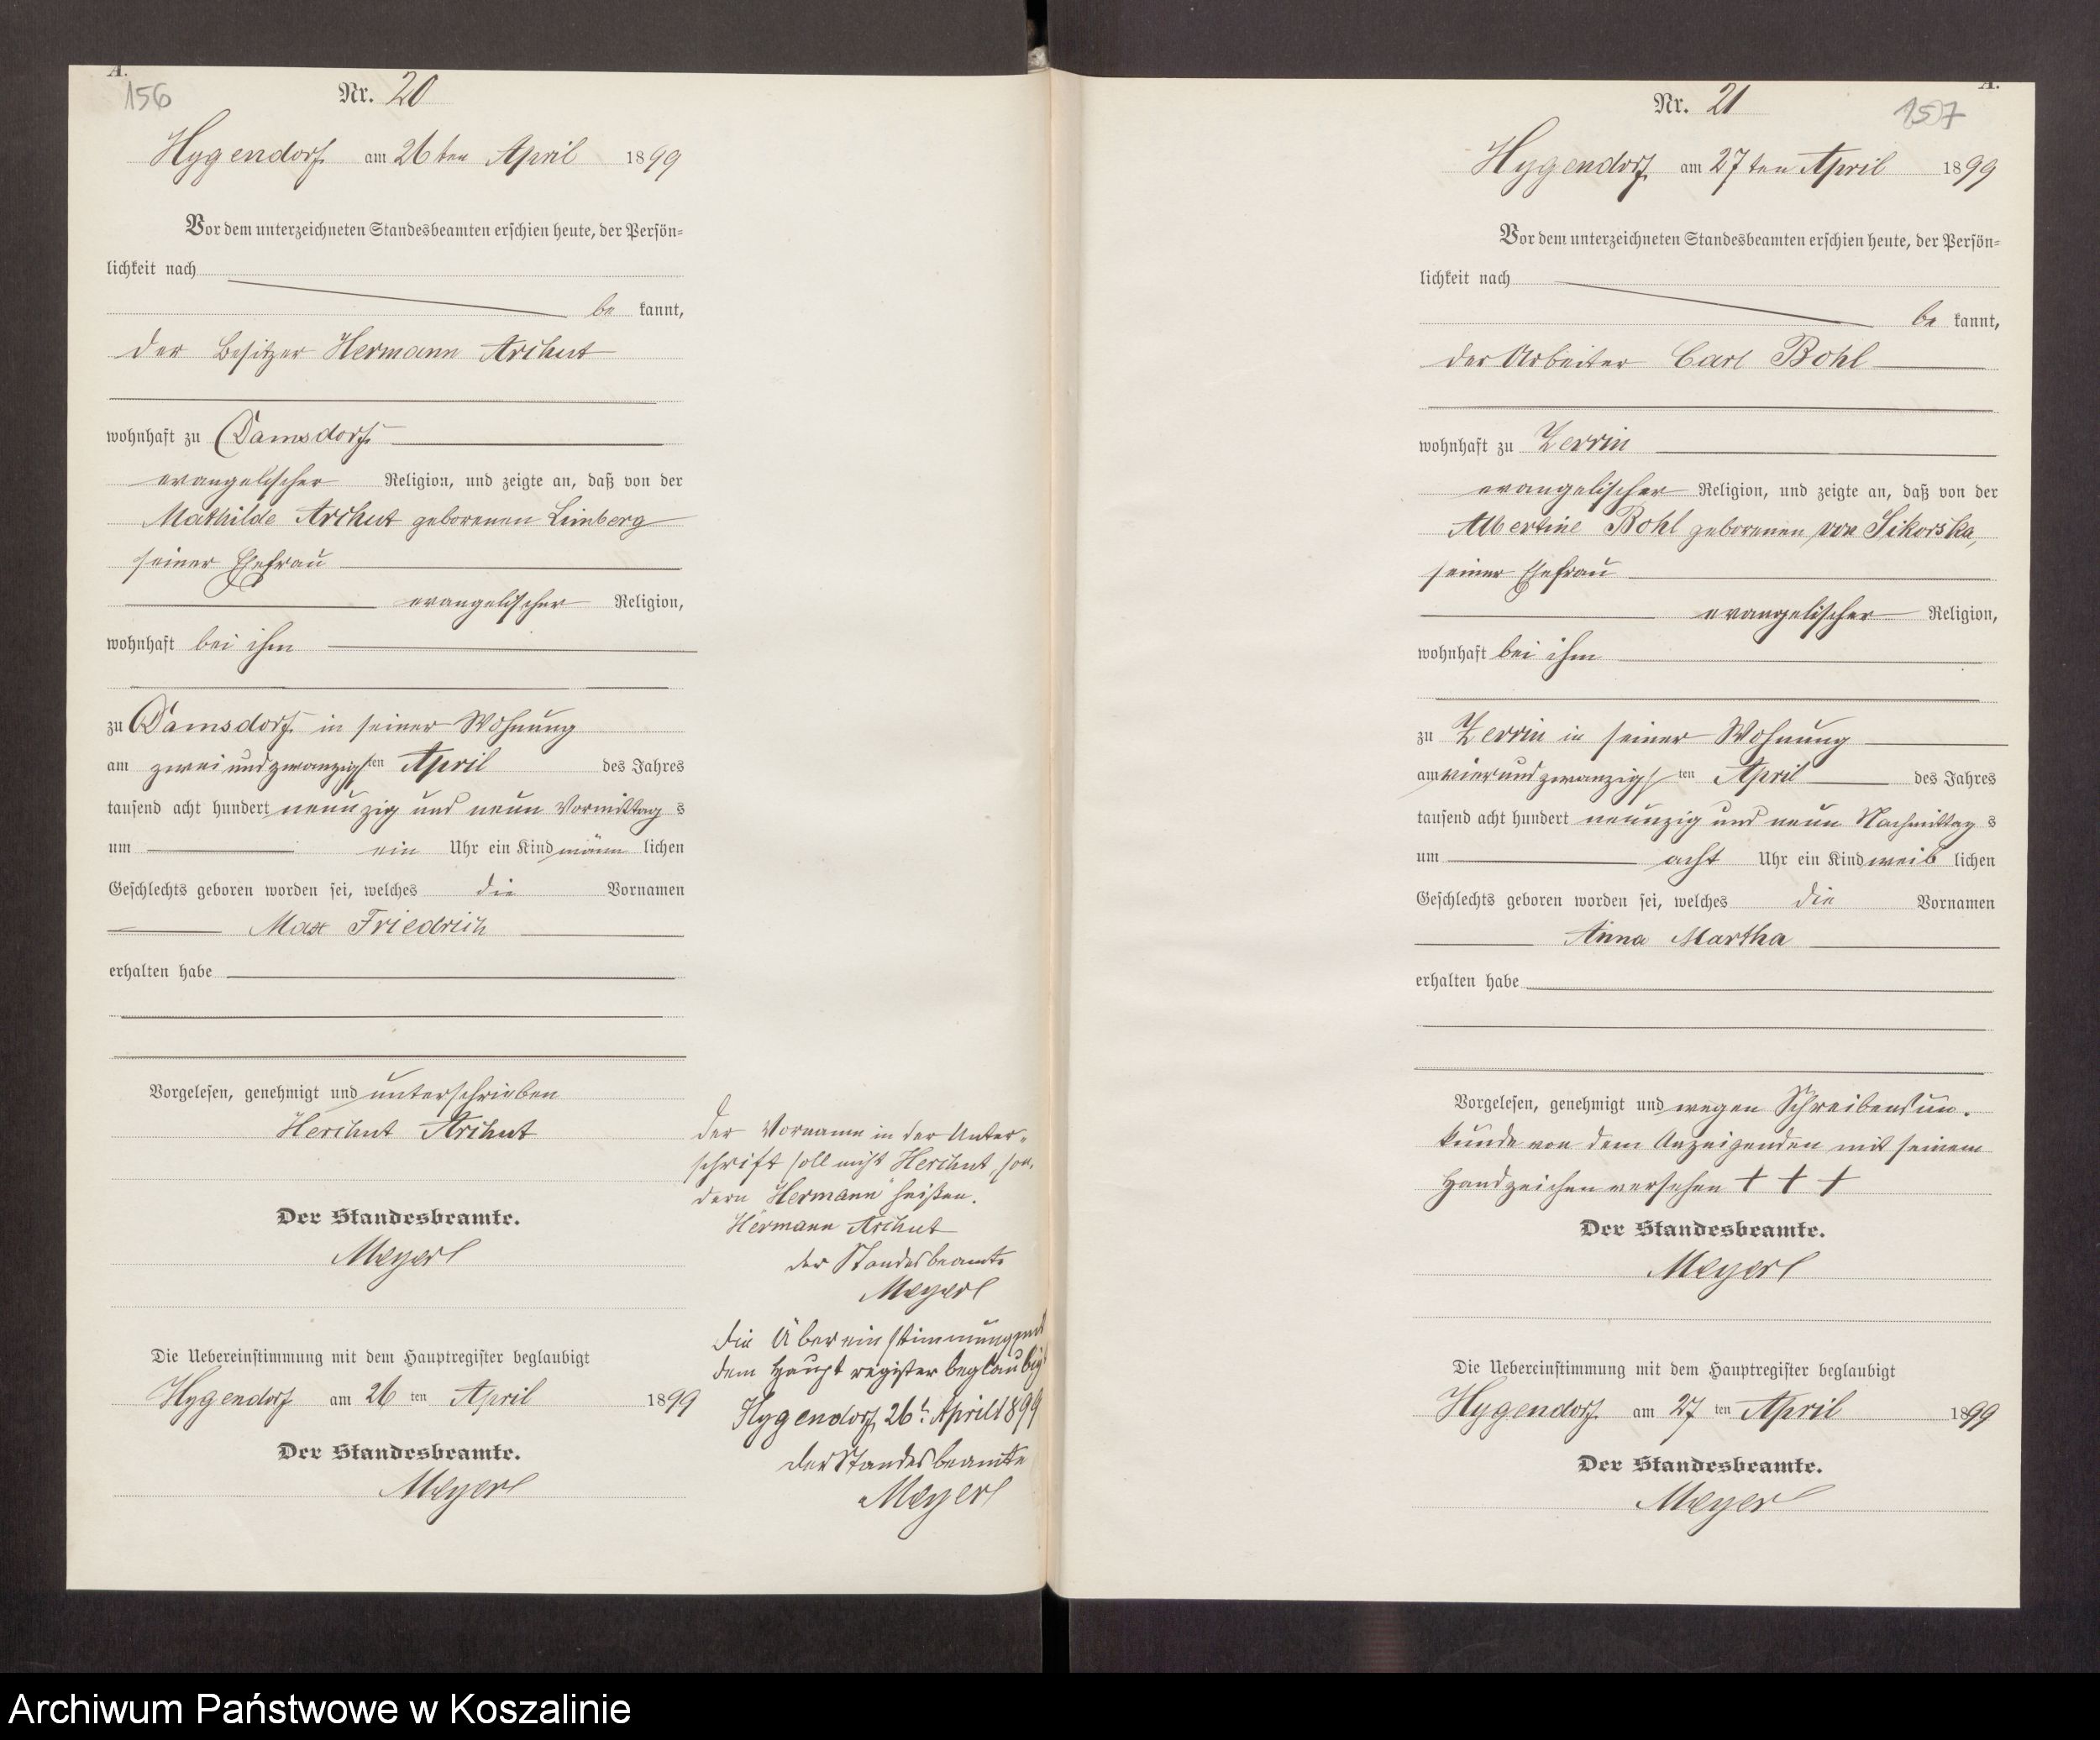 A.
156
Nr. 20
Hygendorf am 26ten April 1899
Vor dem unterzeichneten Standesbeamten erschien heute, der Persön-
lichkeit nach
be kannt,
der Besitzer Hermann Archut
wohnhaft zu Damsdorf
evangelischer Religion, und zeigte an, daß von der
Mathilde Archut geborenen Limberg
seiner Ehefrau
evangelischer Religion,
wohnhaft bei ihm
zu Damsdorf in seiner Wohnung
am zwei und zwanzigsten April des Jahres
tausend acht hundert neunzig und neun Vormittag s
um ein Uhr ein Kind männ lichen
Geschlechts geboren worden sei, welches die Vornamen
Max Friedrich
erhalten habe
Vorgelesen, genehmigt und unterschrieben
Herchut Archut
Der Standesbeamte.
Meyer
Die Uebereinstimmung mit dem Hauptregister beglaubigt
Hygendorf am 26 ten April 1899
Der Standesbeamte.
Meyer
Der Vorname in der Unter-
schrift soll nicht Herchut, son-
dern "Hermann" heißen.
Hermann Archut
der Standesbeamte
Meyer
Die Übereinstimmung mit
dem Hauptregister beglaubigt
Hygendorf, 26t. April 1899
Der Standesbeamte
Meyer
A.
157
Nr. 21
Hygendorf am 27ten April 1899
Vor dem unterzeichneten Standesbeamten erschien heute, der Persön-
lichkeit nach
be kannt,
der Arbeiter Carl Bohl
wohnhaft zu Zerrin
evangelischer Religion, und zeigte an, daß von der
Albertine Bohl geborenen von Sikorska,
seiner Ehefrau
evangelischer Religion,
wohnhaft bei ihm
zu Zerrin in seiner Wohnung
am vier und zwanzigs ten April des Jahres
tausend acht hundert neunzig und neun Nachmittag s
um acht Uhr ein Kind weib lichen
Geschlechts geboren worden sei, welches die Vornamen
Anna Martha
erhalten habe
Vorgelesen, genehmigt und wegen Schreibensun-
kunde von dem Anzeigenden mit seinem
Handzeichen versehen + + +
Der Standesbeamte.
Meyer
Die Uebereinstimmung mit dem Hauptregister beglaubigt
Hygendorf am 27 ten April 1899
Der Standesbeamte.
Meyer
Archiwum Państwowe w Koszalinie